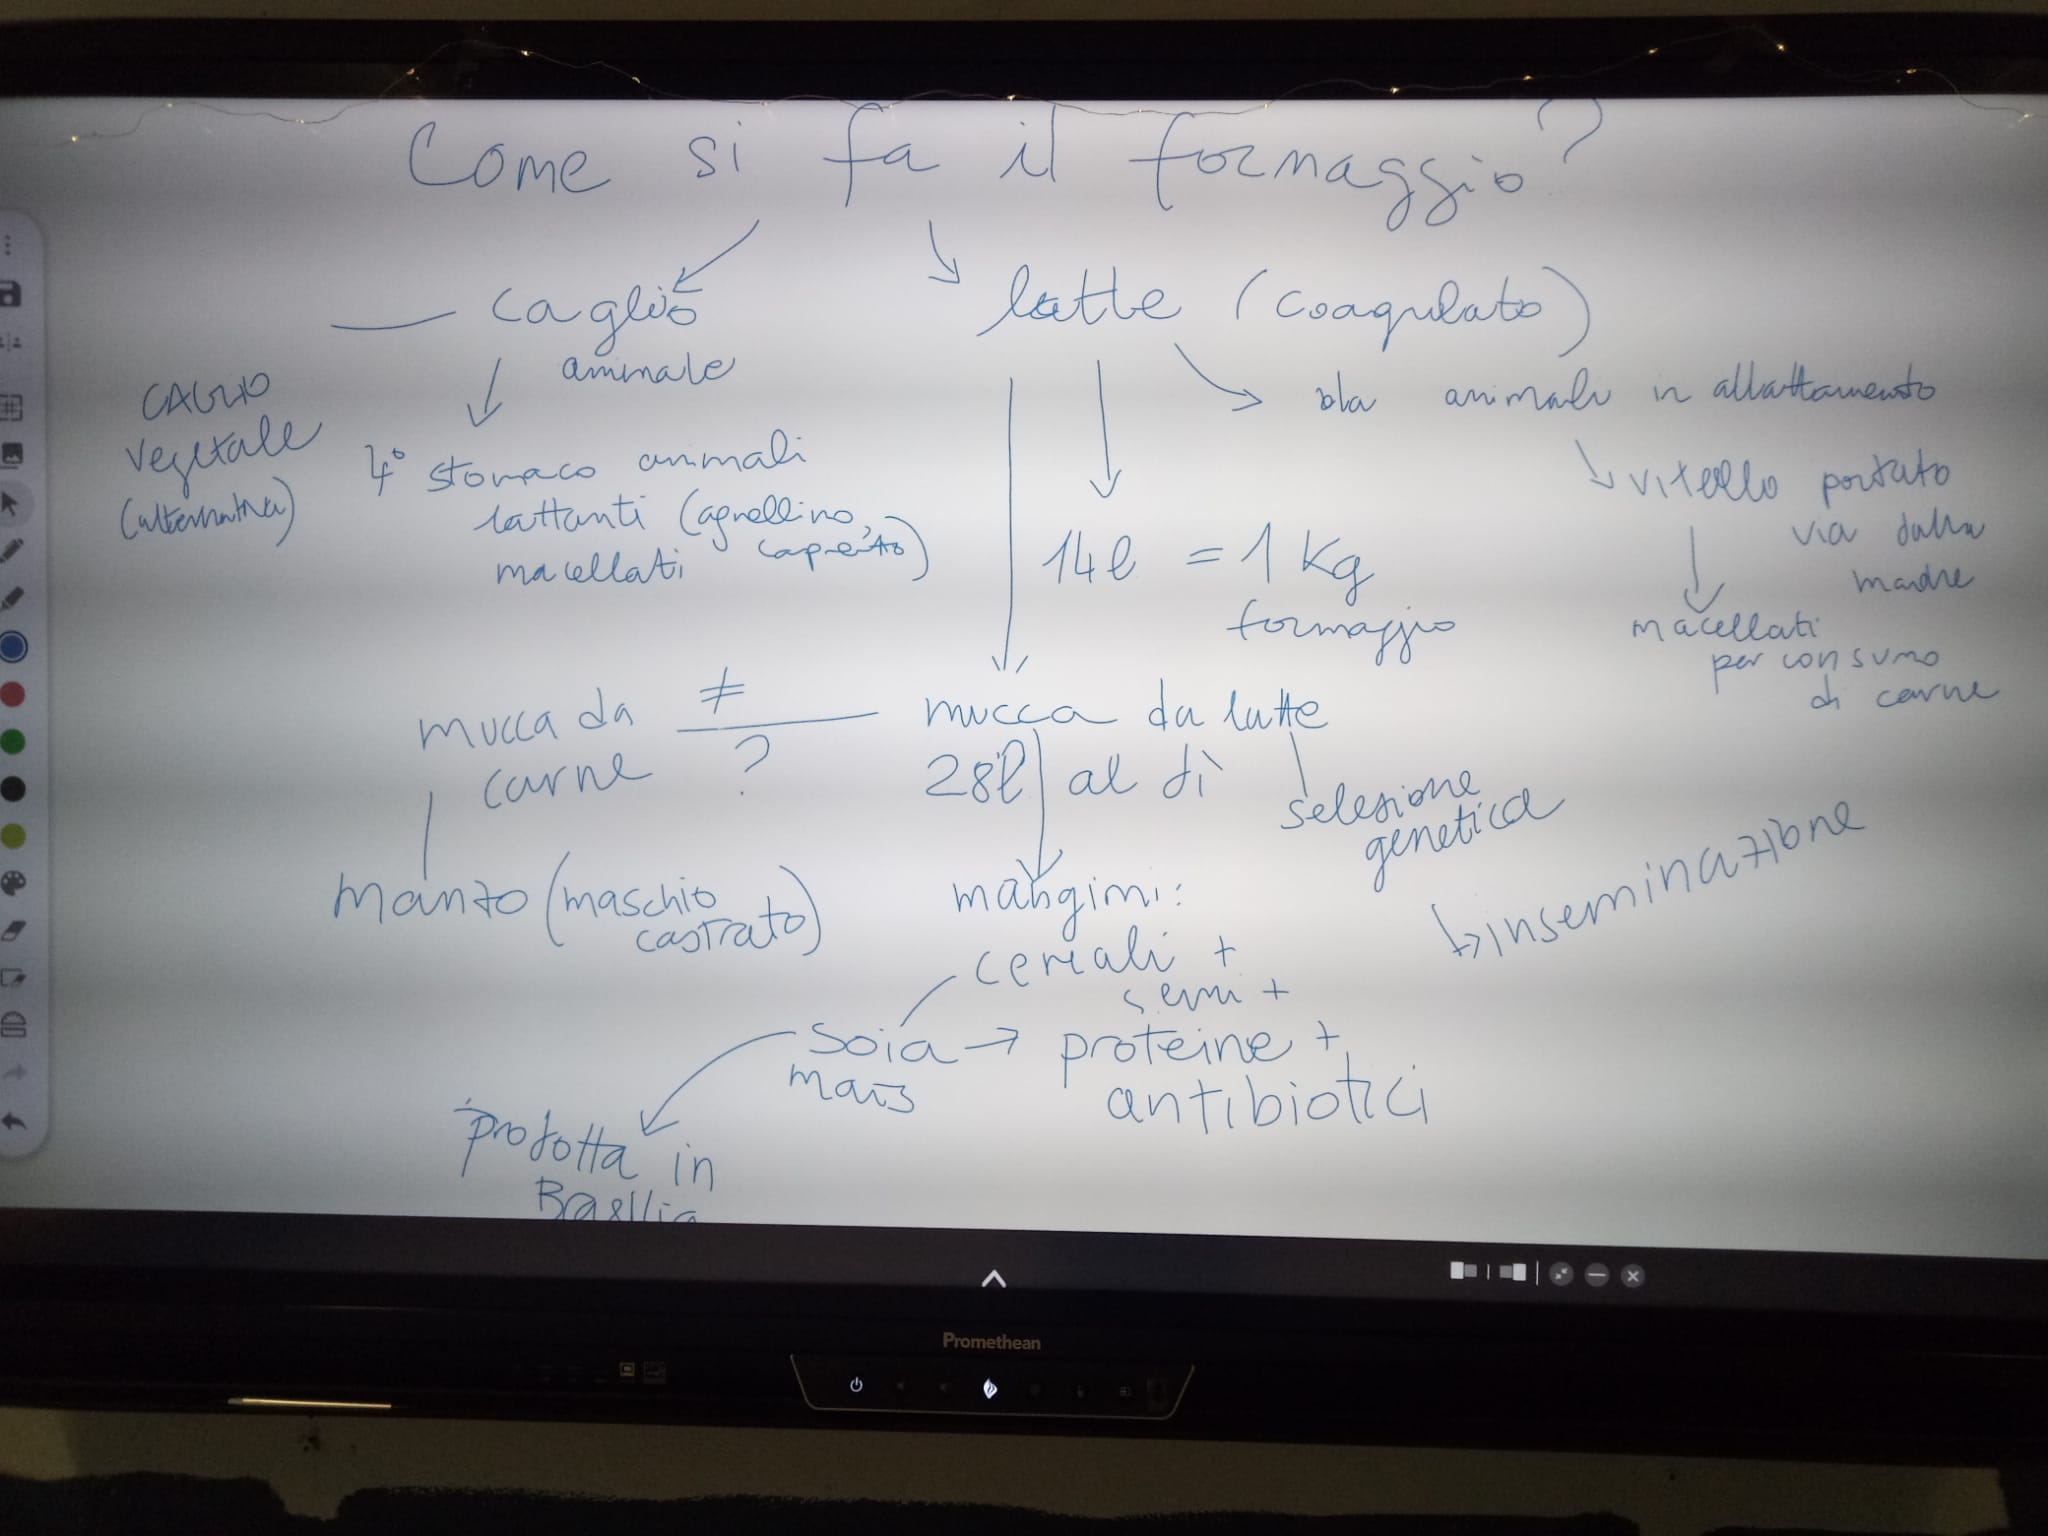 Come si fa il formaggio?
caglio
animale
latte (coagulato)
CAGLIO
vegetale
(alternativa)
4° stomaco animali
lattanti (agnellino,
capretto)
macellati
14l = 1 Kg
formaggio
da animali in allattamento
vitello portato
via dalla
madre
macellati
per consumo
di carne
mucca da
carne
≠
?
mucca da latte
28l al dì
selezione
genetica
inseminazione
manzo (maschio
castrato)
mangimi:
cereali +
semi +
soia → proteine +
mais
antibiotici
prodotta in
Brasile
Promethean